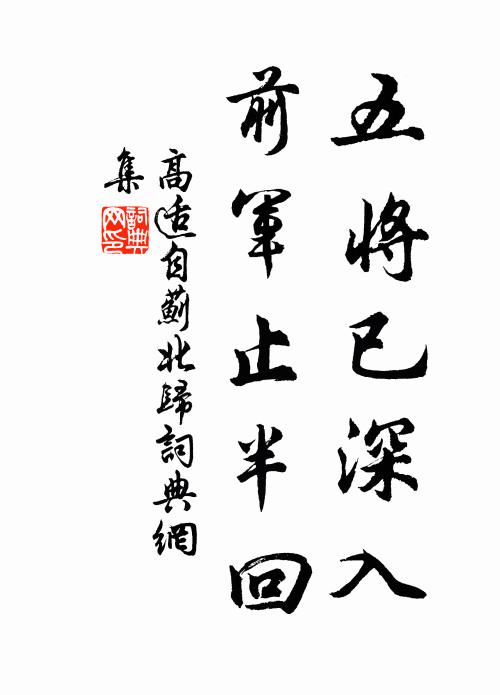 五將已深入
前軍止半回
高适自薊北歸詞典網
集
詞典
网印